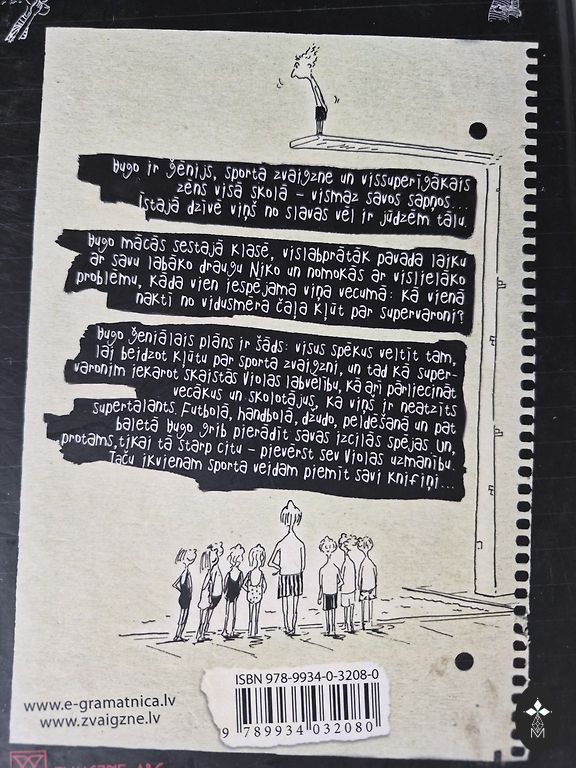 Hugo ir ģēnijs, sporta zvaigzne un vissuperīgākais
zēns visā skolā – vismaz savos sapņos...
Īstajā dzīvē viņš no slavas vēl ir jūdzēm tālu.
Hugo mācās sestajā klasē, vislabprātāk pavada laiku
ar savu labāko draugu Niko un nomokās ar vislielāko
problēmu, kāda vien iespējama viņa vecumā: kā vienā
naktī no vidusmēra čaļa kļūt par supervaroni?
Hugo ģeniālais plāns ir šāds: visus spēkus veltīt tam,
lai beidzot kļūtu par sporta zvaigzni, un tad kā super-
varonim iekarot skaistās Violas labvēlību, kā arī pārliecināt
vecākus un skolotājus, ka viņš ir neatzīts
supertalants. Futbolā, handbolā, dzudo, peldēšanā un pat
baletā Hugo grib pierādīt savas izcilās spējas un,
protams, tikai tā starp citu – pievērst sev Violas uzmanību.
Taču ikvienam sporta veidam piemīt savi knifiņi...
ISBN 978-9934-0-3208-0
www.e-gramatnica.lv
www.zvaigzne.lv
9 789934 032080